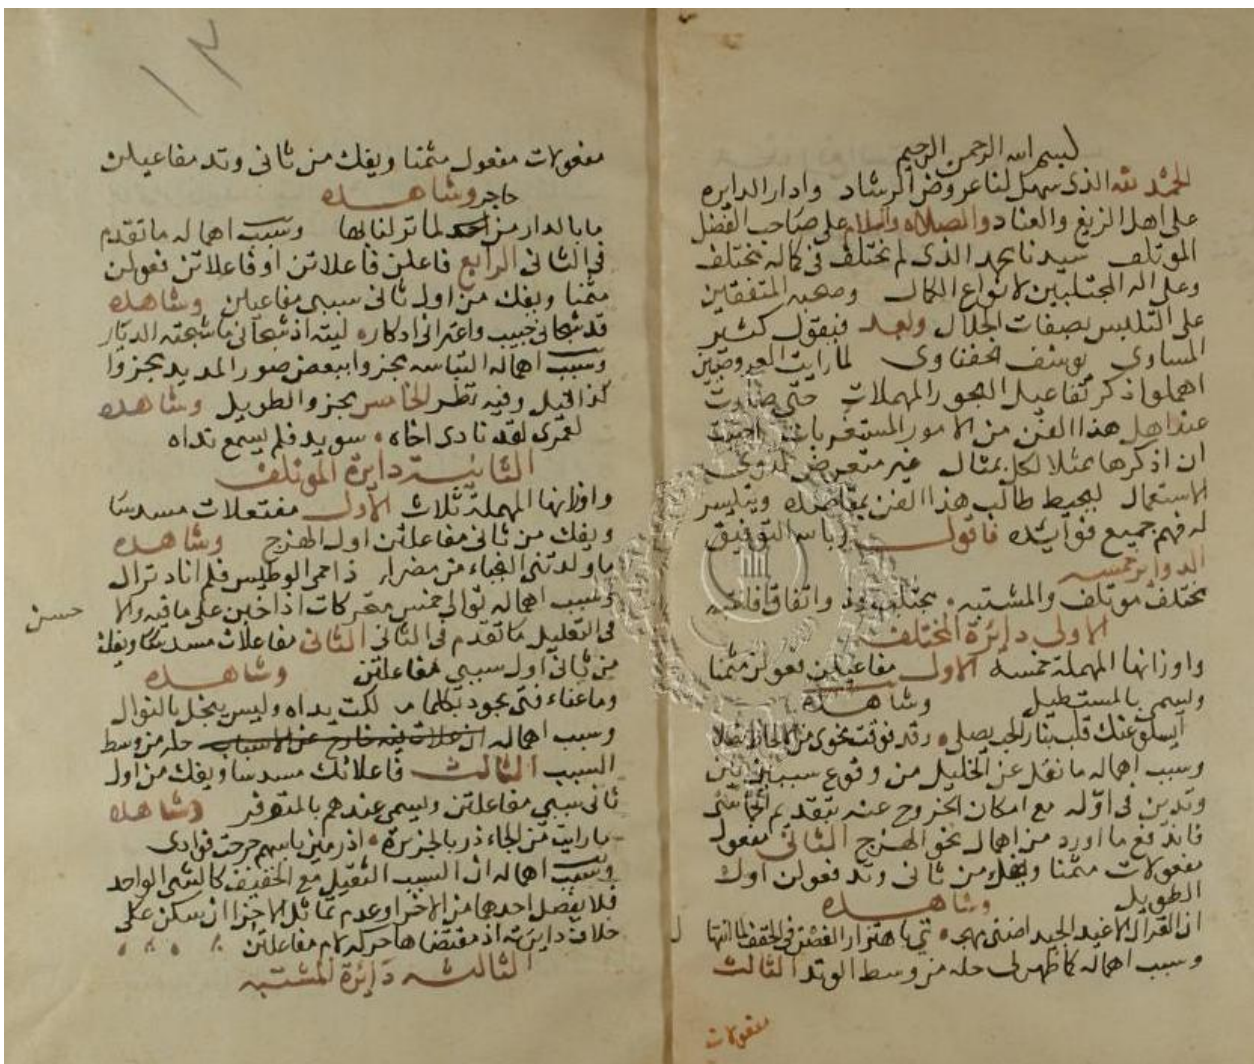 بسم الله الرحمن الرحيم
الحمد لله الذى سهل لنا عروض الرشاد وادار الدايره
على اهل الزيغ والعناد والصلاه والسلام على صاحب الفضل
الموتلف سيدنا محمد الذى لم نختلف فى كماله نختلف
وعلى اله المجتلبين لانواع الكمال وصحبه المتفقين
على التلبس بصفات الجلال وبعد فيقول كثير
المساوى يوسف الحفناوى لما رايت العروضيين
اهملوا ذكر تفاعيل البحور المهملات حتى صارت
عند اهل هذا الفن من الامور المستغربات احببت
ان اذكرها ممثلا لكل بمثال غير متعرض لذوى
الاستعمال ليحيط طالب هذا الفن بمقاصده ويتيسر
له فهم جميع فوايده فاقول وبالله التوفيق
الدواير خمسه
مختلف موتلف والمشتبه مجتلب واتفاق فانتبه
الاولى دائرة المختلف
واوزانها المهملة خمسة الاول مفاعيلن فعولن مثمنا
ويسمى بالمستطيل وشاهده
ايسلو عنك قلب بنار الحب يصلى وقد نحوى من
وسبب اهماله ما نقل عن الخليل من وقوع سببين بين
وتدين فى اوله مع امكان الخروج عنه بتقديم
فاندفع ما اورد من اهمال نحو الهزج الثانى مفعول
مفعولات مثمنا ويفك من ثانى وتد فعولن اول
الطويل وشاهده
ان الغزال الاغيد الجيد اضنى مهجتى باهتزار الغصن فى الحقف لما انتها
وسبب اهماله كما ظهر لى حله من وسط الوتد الثالث
مفعولات
١٣
مفعولات مفعول مثمنا ويفك من ثانى وتد مفاعيلن
حاجر وشاهده
ما بالدار من احد لما نزلنا بها وسبب اهماله ما تقدم
فى الثانى الرابع فاعلن فاعلاتن او فاعلاتن فعولن
مثمنا ويفك من اول ثانى سببى مفاعيلن وشاهده
قد شجانى حبيب واعترانى ادكاره ليته اذ شجانى ما شجته الديار
وسبب اهماله التباسه بجزوا ببعض صور المديد مجزوا
كذا قيل وفيه نظر الخامس مجزو الطويل وشاهده
لعمرى لقد نادى اخاه سويد فلم يسمع نداه
الثانية دايرة الموتلف
واوزانها المهملة ثلاث الاول مفتعلات مسدسا
ويفك من ثانى مفاعلتن اول الهزج وشاهده
ما ولدتنى من مضر ذا حمى الوطيس فلم اناد نزال
وسبب اهماله توالى خمس متحركات اذا خبن على ما فيه والا
حسن
فى التعليل ما تقدم فى الثانى الثانى مفاعلات مسدسا ويفك
من ثانى اول سببى مفاعلتن وشاهده
وما عناء فتى يجود بكلما ملكت يداه وليس يبخل بالنوال
وسبب اهماله حله من وسط
السبب الثالث فاعلاتك مسدسا ويفك من اول
ثانى سببى مفاعلتن ويسمى عندهم بالمتوفر وشاهده
ما رايت من الجاءذر بالجزيرة اذ رمين باسهم جرحت فوادى
وسبب اهماله ان السبب الثقيل مع الخفيف كالشى الواحد
فلا يفصل احدهما من الاخر او عدم تماثل الاجزا ان سكن على
خلاف دايرته اذ مقتضاها حركه لام مفاعلتن
الثالثه دائرة المشتبه